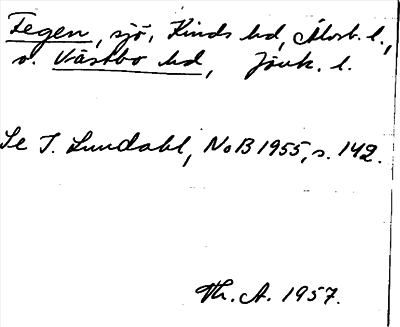 Fegen, sjö, Kinds hd, Älvsb. l.,
o. Västbo hd, Jönk. l.
Se I. Lundahl, NoB 1955, s. 142.
Th. A. 1957.